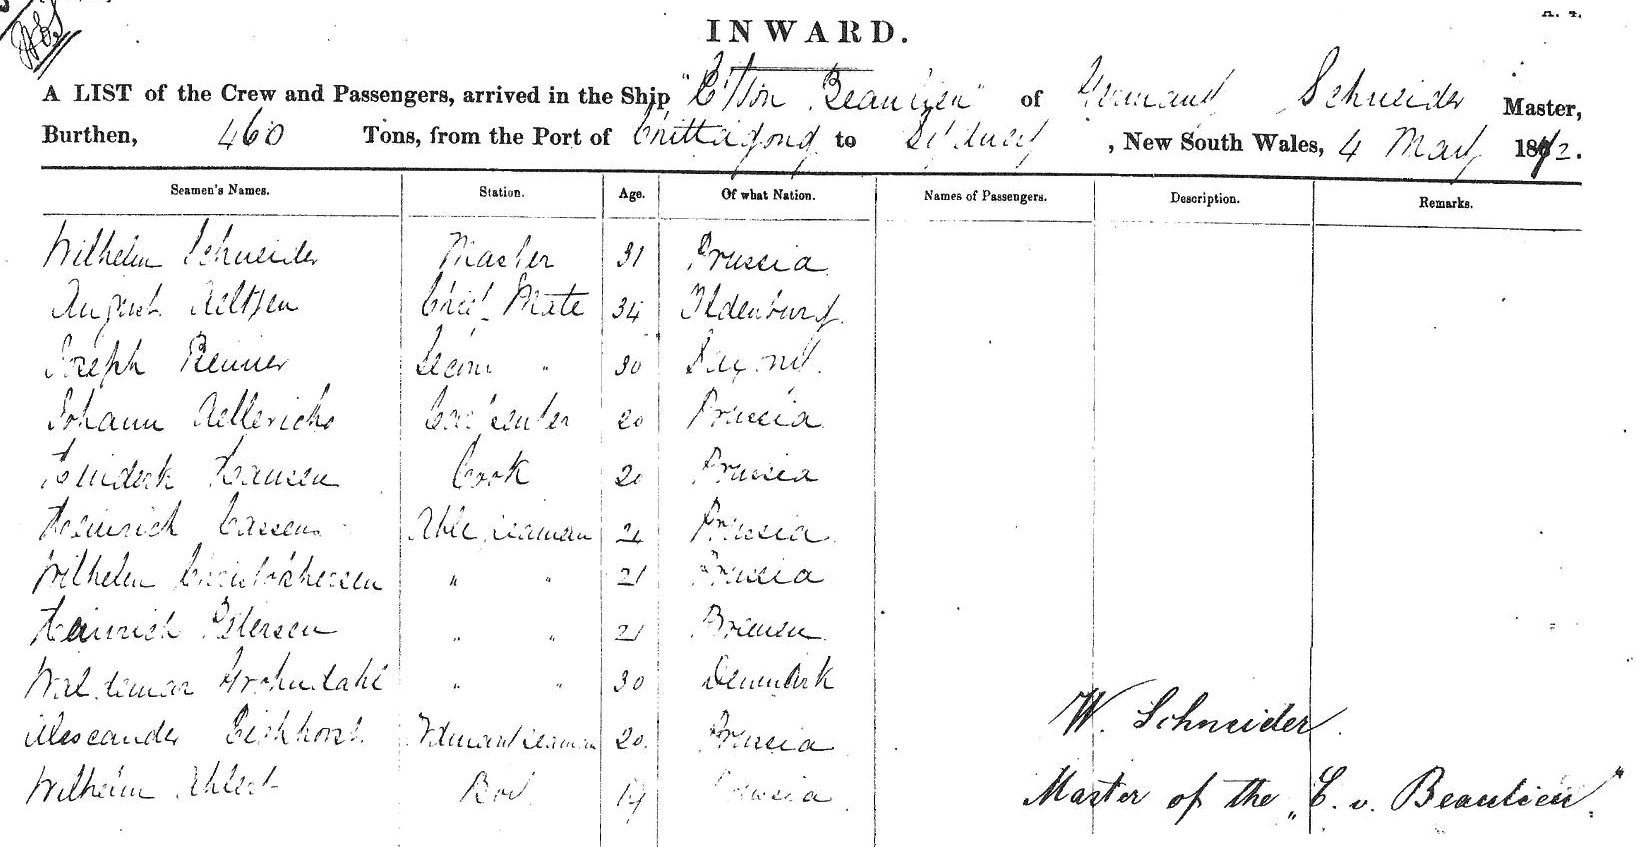 A. 4.
INWARD.
A LIST of the Crew and Passengers, arrived in the Ship "C. von Beaulieu" of Germany Schneider Master,
Burthen, 460 Tons, from the Port of Chittagong to Sydney, New South Wales, 4 May 1872.
Seamen's Names. Station. Age. Of what Nation. Names of Passengers. Description. Remarks.
Wilhelm Schneider Master 31 Prussia
August Chief Mate 34 Oldenburg
Joseph Renner Second " 30
Johann Carpenter 20 Prussia
Hansen Cook 20 Prussia
Heinrich Cassens Able Seaman Prussia
Wilhelm " " 21 Prussia
Heinrich Petersen " " 21 Bremen
Waldemar " " 30 Denmark
W. Schneider
Eickhorst 20 Prussia
Wilhelm Ahlert Boy Prussia
Master of the "C. v. Beaulieu."